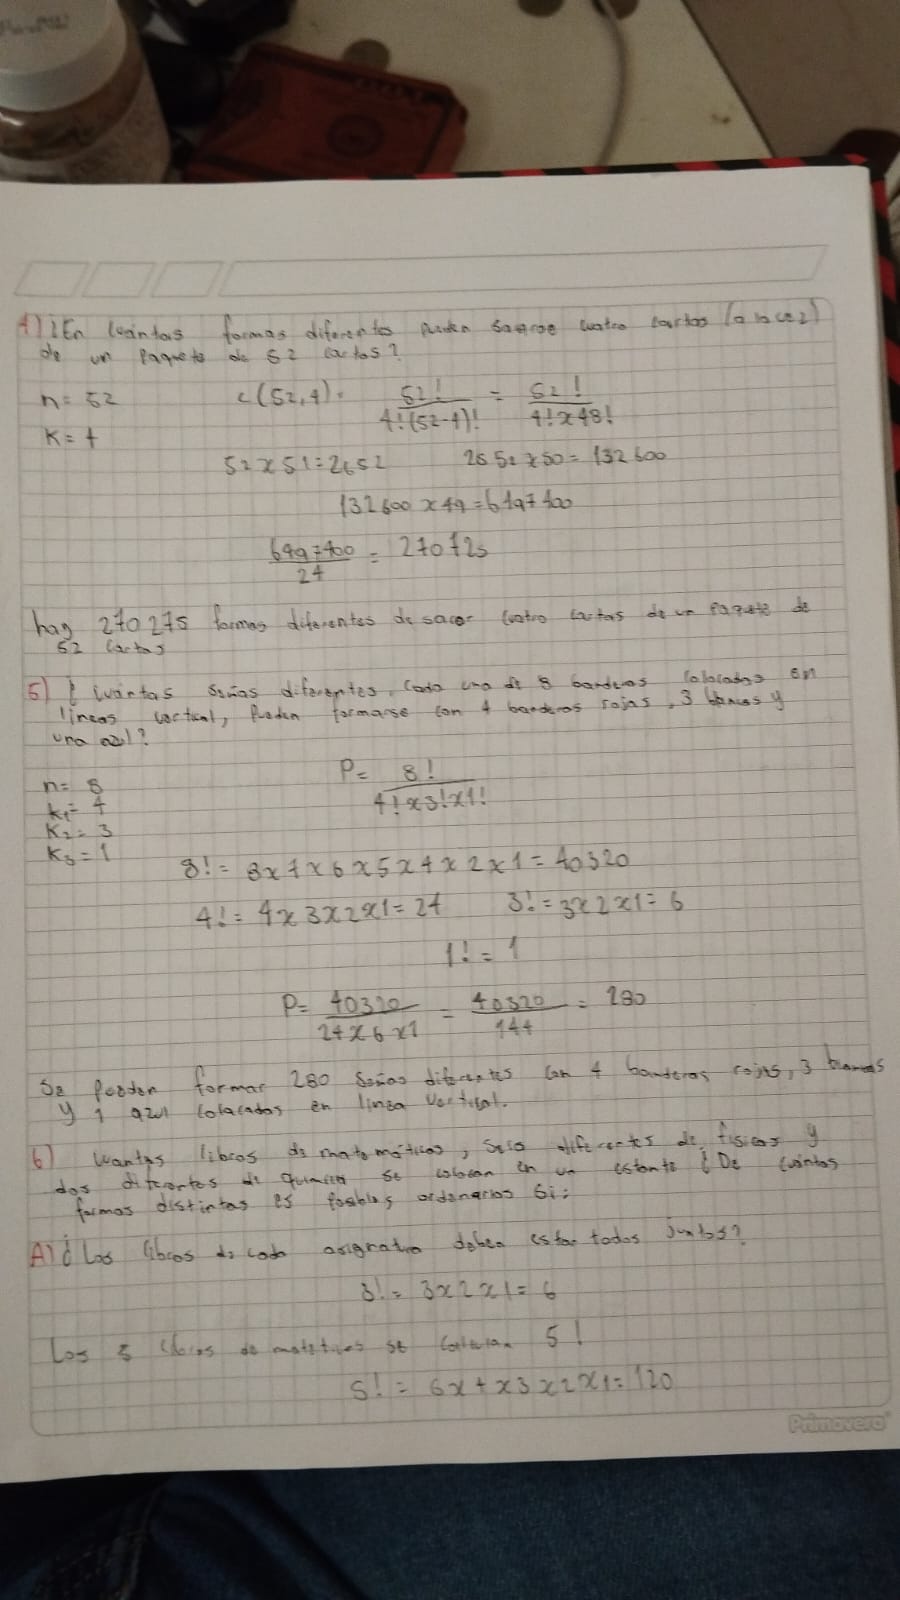 4) ¿En cuántas formas diferentes pueden sacarse cuatro cartas (a la vez)
de un paquete de 52 cartas?
n = 52
C(52,4) = 52! / 4!(52-4)! = 52! / 4! x 48!
K = 4
52 x 51 = 2652
2652 x 50 = 132600
132600 x 49 = 6497400
6497400 / 24 = 270725
hay 270275 formas diferentes de sacar cuatro cartas de un paquete de
52 cartas
5) ¿ cuántas señas diferentes, cada una de 8 banderas colocadas en
líneas vertical, pueden formarse con 4 banderas rojas, 3 blancas y
una azul?
P = 8! / 4! x 3! x 1!
n = 8
K1 = 4
K2 = 3
K3 = 1
8! = 8 x 7 x 6 x 5 x 4 x 2 x 1 = 40320
4! = 4 x 3 x 2 x 1 = 24
3! = 3 x 2 x 1 = 6
1! = 1
P = 40320 / 24 x 6 x 1 = 40320 / 144 = 280
Se pueden formar 280 señas diferentes con 4 banderas rojas, 3 blancas
y 1 azul colocadas en línea vertical.
6) libros de matemáticas, seis diferentes de físicas y
dos diferentes de química se colocan en un estante ¿ De cuántas
formas distintas es posible ordenarlos Si:
A) ¿ Los libros de cada asignatura deben estar todos juntos?
3! = 3 x 2 x 1 = 6
Los 5 libros de se 5!
5! = 6 x 4 x 3 x 2 x 1 = 120
Primavera